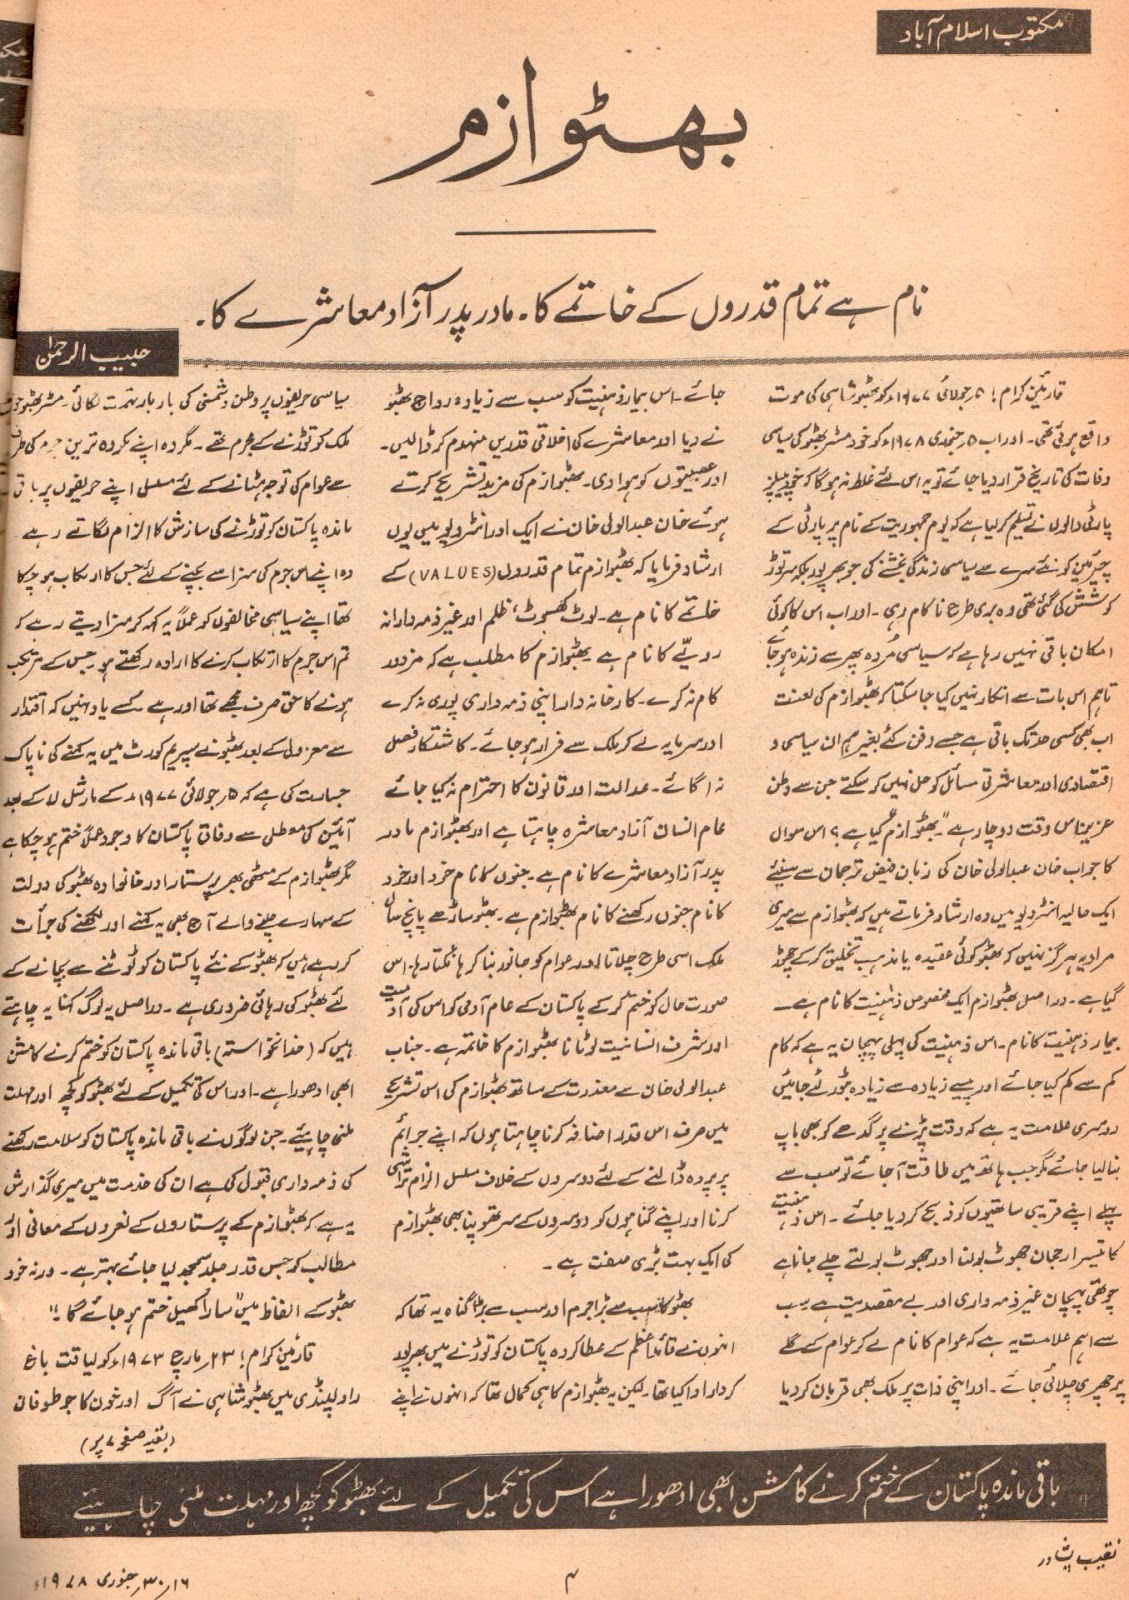 مکتوب اسلام آباد
بھٹوازم
نام ہے تمام قدروں کے خاتمے کا۔ مادر پدر آزاد معاشرے کا۔
حبیب الرحمٰن
قارئین کرام! ۵؍جولائی ۱۹۷۷ء کو بھٹو شاہی کی موت
واقع ہوئی تھی۔ اور اب ۵؍جنوری ۱۹۷۸ء کو خود مسٹر بھٹو کی سیاسی
وفات کی تاریخ قرار دیا جائے تو یہ اس لئے غلط نہ ہوگا کہ خود پیپلز
پارٹی والوں نے تسلیم کر لیا ہے کہ یوم جمہوریت کے نام پر پارٹی کے
چیئرمین کو نئے سرے سے سیاسی زندگی بخشنے کی جو بھرپور بلکہ سرتوڑ
کوشش کی گئی تھی وہ بری طرح ناکام رہی۔ اور اب اس کا کوئی
امکان باقی نہیں رہا ہے کہ سیاسی مُردہ پھر سے زندہ ہو جائے
تاہم اس بات سے انکار نہیں کیا جا سکتا کہ بھٹوازم کی لعنت
اب بھی کسی حد تک باقی ہے جسے دفن کئے بغیر ہم ان سیاسی و
اقتصادی اور معاشرتی مسائل کو حل نہیں کر سکتے جن سے وطن
عزیز اس وقت دوچار ہے "بھٹوازم" کیا ہے؟ اس سوال
کا جواب خان عبدالولی خان کی زبان فیض ترجمان سے سنیئے
ایک حالیہ انٹرویو میں وہ ارشاد فرماتے ہیں کہ بھٹوازم سے میری
مراد یہ ہرگز نہیں کہ بھٹو کوئی عقیدہ یا مذہب تخلیق کر کے چھوڑ
گیا ہے۔ دراصل بھٹوازم ایک مخصوص ذہنیت کا نام ہے۔
بیمار ذہنیت کا نام۔ اس ذہنیت کی پہلی پہچان یہ ہے کہ کام
کم سے کم کیا جائے اور پیسے زیادہ سے زیادہ بٹورے جائیں
دوسری علامت یہ ہے کہ وقت پڑنے پر گدھے کو بھی باپ
بنا لیا جائے مگر جب ہاتھ میں طاقت آجائے تو سب سے
پہلے اپنے قریبی ساتھیوں کو ذبح کر دیا جائے۔ اس ذہنیت
کا تیسرا رجحان جھوٹ بولنا اور جھوٹ بولتے چلے جانا ہے
چوتھی پہچان غیر ذمہ داری اور بے مقصدیت ہے سب
سے اہم علامت یہ ہے کہ عوام کا نام لے کر عوام کے گلے
پر چھری چلائی جائے۔ اور اپنی ذات پر ملک بھی قربان کر دیا
جائے۔ اس بیمار ذہنیت کو سب سے زیادہ رواج بھٹو
نے دیا اور معاشرے کی اخلاقی قدریں منہدم کر ڈالیں۔
اور عصبیتوں کو ہوا دی۔ بھٹوازم کی مزید تشریح کرتے
ہوئے خان عبدالولی خان نے ایک اور انٹرویو میں یوں
ارشاد فرمایا کہ بھٹوازم تمام قدروں (VALUES) کے
خاتمے کا نام ہے۔ لوٹ کھسوٹ، ظلم اور غیر ذمہ دارانہ
رویّے کا نام ہے بھٹوازم کا مطلب ہے کہ مزدور
کام نہ کرے۔ کارخانہ دار اپنی ذمہ داری پوری نہ کرے
اور سرمایہ لے کر ملک سے فرار ہو جائے۔ کاشتکار فصل
نہ اگائے۔ عدالت اور قانون کا احترام نہ کیا جائے
عام انسان آزاد معاشرہ چاہتا ہے اور بھٹوازم مادر
پدر آزاد معاشرے کا نام ہے۔ جنوں کا نام خرد اور خرد
کا نام جنوں رکھنے کا نام بھٹوازم ہے۔ بھٹو ساڑھے پانچ سال
ملک اسی طرح چلاتا اور عوام کو جانور بنا کر ہانکتا رہا۔ اس
صورت حال کو ختم کر کے پاکستان کے عام آدمی کو اس کی آدمیت
اور شرف انسانیت لوٹانا بھٹوازم کا خاتمہ ہے۔ جناب
عبدالولی خان سے معذرت کے ساتھ بھٹوازم کی اس تشریح
میں صرف اس قدر اضافہ کرنا چاہتا ہوں کہ اپنے جرائم
پر پردہ ڈالنے کے لئے دوسروں کے خلاف مسلسل الزام تراشی
کرنا اور اپنے گناہوں کو دوسروں کے سر تھوپنا بھی بھٹوازم
کی ایک بہت بڑی صفت ہے۔
بھٹو کا سب سے بڑا جرم اور سب سے بڑا گناہ یہ تھا کہ
انہوں نے قائداعظم کے عطا کردہ پاکستان کو توڑنے میں بھرپور
کردار ادا کیا تھا۔ لیکن یہ بھٹوازم کا ہی کمال تھا کہ انہوں نے اپنے
سیاسی حریفوں پر وطن دشمنی کی بار بار تہمت لگائی۔ مسٹر بھٹو خود
ملک کو توڑنے کے مجرم تھے۔ مگر وہ اپنے مکروہ ترین جرم کی طرف
سے عوام کی توجہ ہٹانے کے لئے مسلسل اپنے حریفوں پر باقی
ماندہ پاکستان کو توڑنے کی سازش کا الزام لگاتے رہے
وہ اپنے اس جرم کی سزا سے بچنے کے لئے جس کا ارتکاب ہو چکا
تھا اپنے سیاسی مخالفوں کو عملاً یہ کہہ کر سزا دیتے رہے کہ
تم اس جرم کا ارتکاب کرنے کا ارادہ رکھتے ہو۔ جس کے مرتکب
ہونے کا حق صرف مجھے تھا اور ہے۔ کسے یاد نہیں کہ اقتدار
سے معزولی کے بعد بھٹو نے سپریم کورٹ میں یہ کہنے کی ناپاک
جسارت کی ہے کہ ۵؍جولائی ۱۹۷۷ء کے مارشل لا کے بعد
آئین کی معطلی سے وفاق پاکستان کا وجود عملاً ختم ہو چکا ہے
مگر بھٹوازم کے مٹھی بھر پرستار اور خانوادہ بھٹو کی دولت
کے سہارے پلنے والے آج بھی یہ کہنے اور لکھنے کی جرأت
کر رہے ہیں کہ بھٹو کے نئے پاکستان کو ٹوٹنے سے بچانے کے
لئے بھٹو کی رہائی ضروری ہے۔ دراصل یہ لوگ کہنا یہ چاہتے
ہیں کہ (خدانخواستہ) باقی ماندہ پاکستان کو ختم کرنے کا مشن
ابھی ادھورا ہے۔ اور اس کی تکمیل کے لئے بھٹو کو کچھ اور مہلت
ملنی چاہئیے۔ جن لوگوں نے باقی ماندہ پاکستان کو سلامت رکھنے
کی ذمہ داری قبول کی ہے ان کی خدمت میں میری گذارش
یہ ہے کہ بھٹوازم کے پرستاروں کے نعروں کے معانی اور
مطالب کو جس قدر جلد سمجھ لیا جائے بہتر ہے۔ ورنہ خود
بھٹو کے الفاظ میں "سارا کھیل ختم ہو جائے گا!!"
قارئین کرام! ۲۳؍مارچ ۱۹۷۳ء کو لیاقت باغ
راولپنڈی میں بھٹو شاہی نے آگ اور خون کا جو طوفان
(بقیہ صفحہ ۷ پر)
باقی ماندہ پاکستان کے ختم کرنے کا مشن ابھی ادھورا ہے اس کی تکمیل کے لئے بھٹو کو کچھ اور مہلت ملنی چاہیئے
نقیب پشاور
۴
۱۶؍۳۰؍جنوری ۱۹۷۸ء